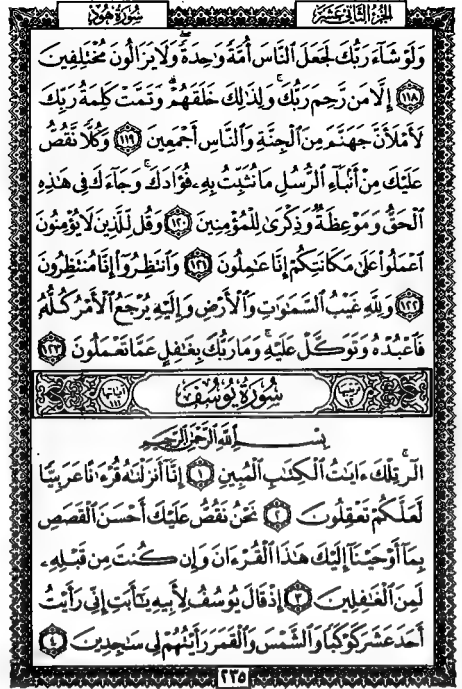 الجزء الثاني عشر
سورة هود
وَلَوْ شَآءَ رَبُّكَ لَجَعَلَ ٱلنَّاسَ أُمَّةً وَٰحِدَةً ۖ وَلَا يَزَالُونَ مُخْتَلِفِينَ
﴿١١٨﴾ إِلَّا مَن رَّحِمَ رَبُّكَ ۚ وَلِذَٰلِكَ خَلَقَهُمْ ۗ وَتَمَّتْ كَلِمَةُ رَبِّكَ
لَأَمْلَأَنَّ جَهَنَّمَ مِنَ ٱلْجِنَّةِ وَٱلنَّاسِ أَجْمَعِينَ ﴿١١٩﴾ وَكُلًّا نَّقُصُّ
عَلَيْكَ مِنْ أَنۢبَآءِ ٱلرُّسُلِ مَا نُثَبِّتُ بِهِۦ فُؤَادَكَ ۚ وَجَآءَكَ فِى هَٰذِهِ
ٱلْحَقُّ وَمَوْعِظَةٌ وَذِكْرَىٰ لِلْمُؤْمِنِينَ ﴿١٢٠﴾ وَقُل لِّلَّذِينَ لَا يُؤْمِنُونَ
ٱعْمَلُوا۟ عَلَىٰ مَكَانَتِكُمْ إِنَّا عَٰمِلُونَ ﴿١٢١﴾ وَٱنتَظِرُوٓا۟ إِنَّا مُنتَظِرُونَ
﴿١٢٢﴾ وَلِلَّهِ غَيْبُ ٱلسَّمَٰوَٰتِ وَٱلْأَرْضِ وَإِلَيْهِ يُرْجَعُ ٱلْأَمْرُ كُلُّهُۥ
فَٱعْبُدْهُ وَتَوَكَّلْ عَلَيْهِ ۚ وَمَا رَبُّكَ بِغَٰفِلٍ عَمَّا تَعْمَلُونَ ﴿١٢٣﴾
سورة يوسف
آياتها ١١١
بِسْمِ ٱللَّهِ ٱلرَّحْمَٰنِ ٱلرَّحِيمِ
الٓر ۚ تِلْكَ ءَايَٰتُ ٱلْكِتَٰبِ ٱلْمُبِينِ ﴿١﴾ إِنَّآ أَنزَلْنَٰهُ قُرْءَٰنًا عَرَبِيًّا
لَّعَلَّكُمْ تَعْقِلُونَ ﴿٢﴾ نَحْنُ نَقُصُّ عَلَيْكَ أَحْسَنَ ٱلْقَصَصِ
بِمَآ أَوْحَيْنَآ إِلَيْكَ هَٰذَا ٱلْقُرْءَانَ وَإِن كُنتَ مِن قَبْلِهِۦ
لَمِنَ ٱلْغَٰفِلِينَ ﴿٣﴾ إِذْ قَالَ يُوسُفُ لِأَبِيهِ يَٰٓأَبَتِ إِنِّى رَأَيْتُ
أَحَدَ عَشَرَ كَوْكَبًا وَٱلشَّمْسَ وَٱلْقَمَرَ رَأَيْتُهُمْ لِى سَٰجِدِينَ ﴿٤﴾
٢٣٥